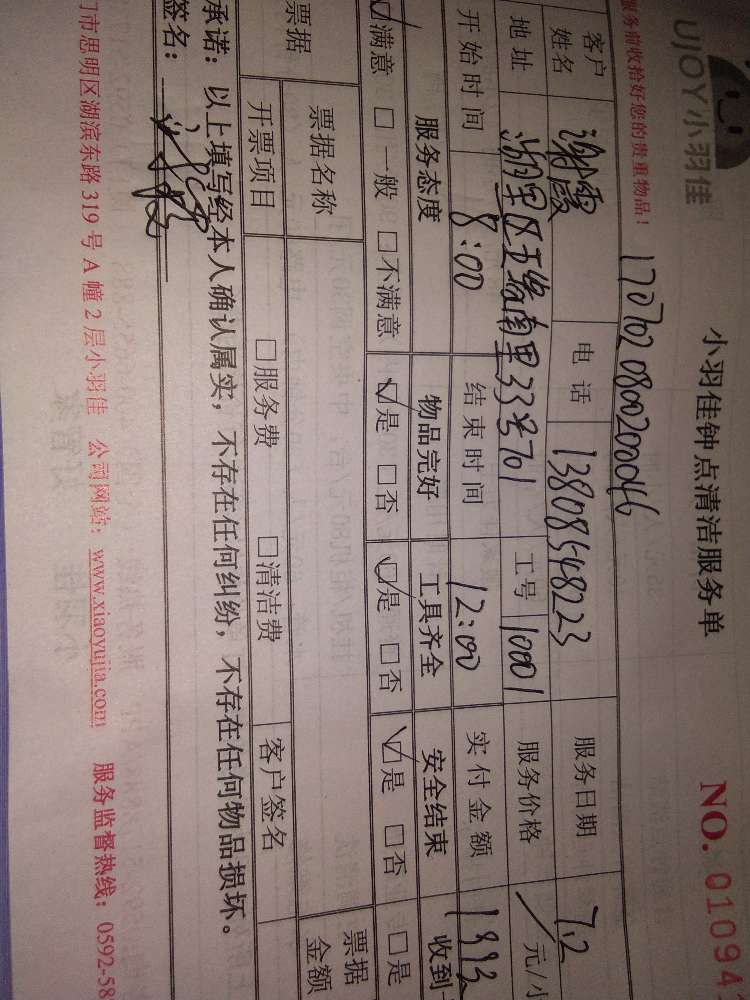 UJOY小羽佳
小羽佳钟点清洁服务单
NO. 01094
服务前收拾好您的贵重物品！
170702 0800200046
客户姓名 谢霞 电话 13808548223 服务日期 7.2
地址 湖里区五缘南里33号701 工号 10001 服务价格 元/小
开始时间 8:00 结束时间 12:00 实付金额
服务态度 物品完好 工具齐全 安全结束 收到
☑满意 □一般 □不满意 ☑是 □否 ☑是 □否 ☑是 □否 □是
票据 票据名称 票据金额
开票项目 □服务费 □清洁费 客户签名
承诺：以上填写经本人确认属实，不存在任何纠纷，不存在任何物品损坏。
签名：
门市思明区湖滨东路 319 号 A 幢 2 层小羽佳 公司网站：www.xiaoyujia.com 服务监督热线：0592-58